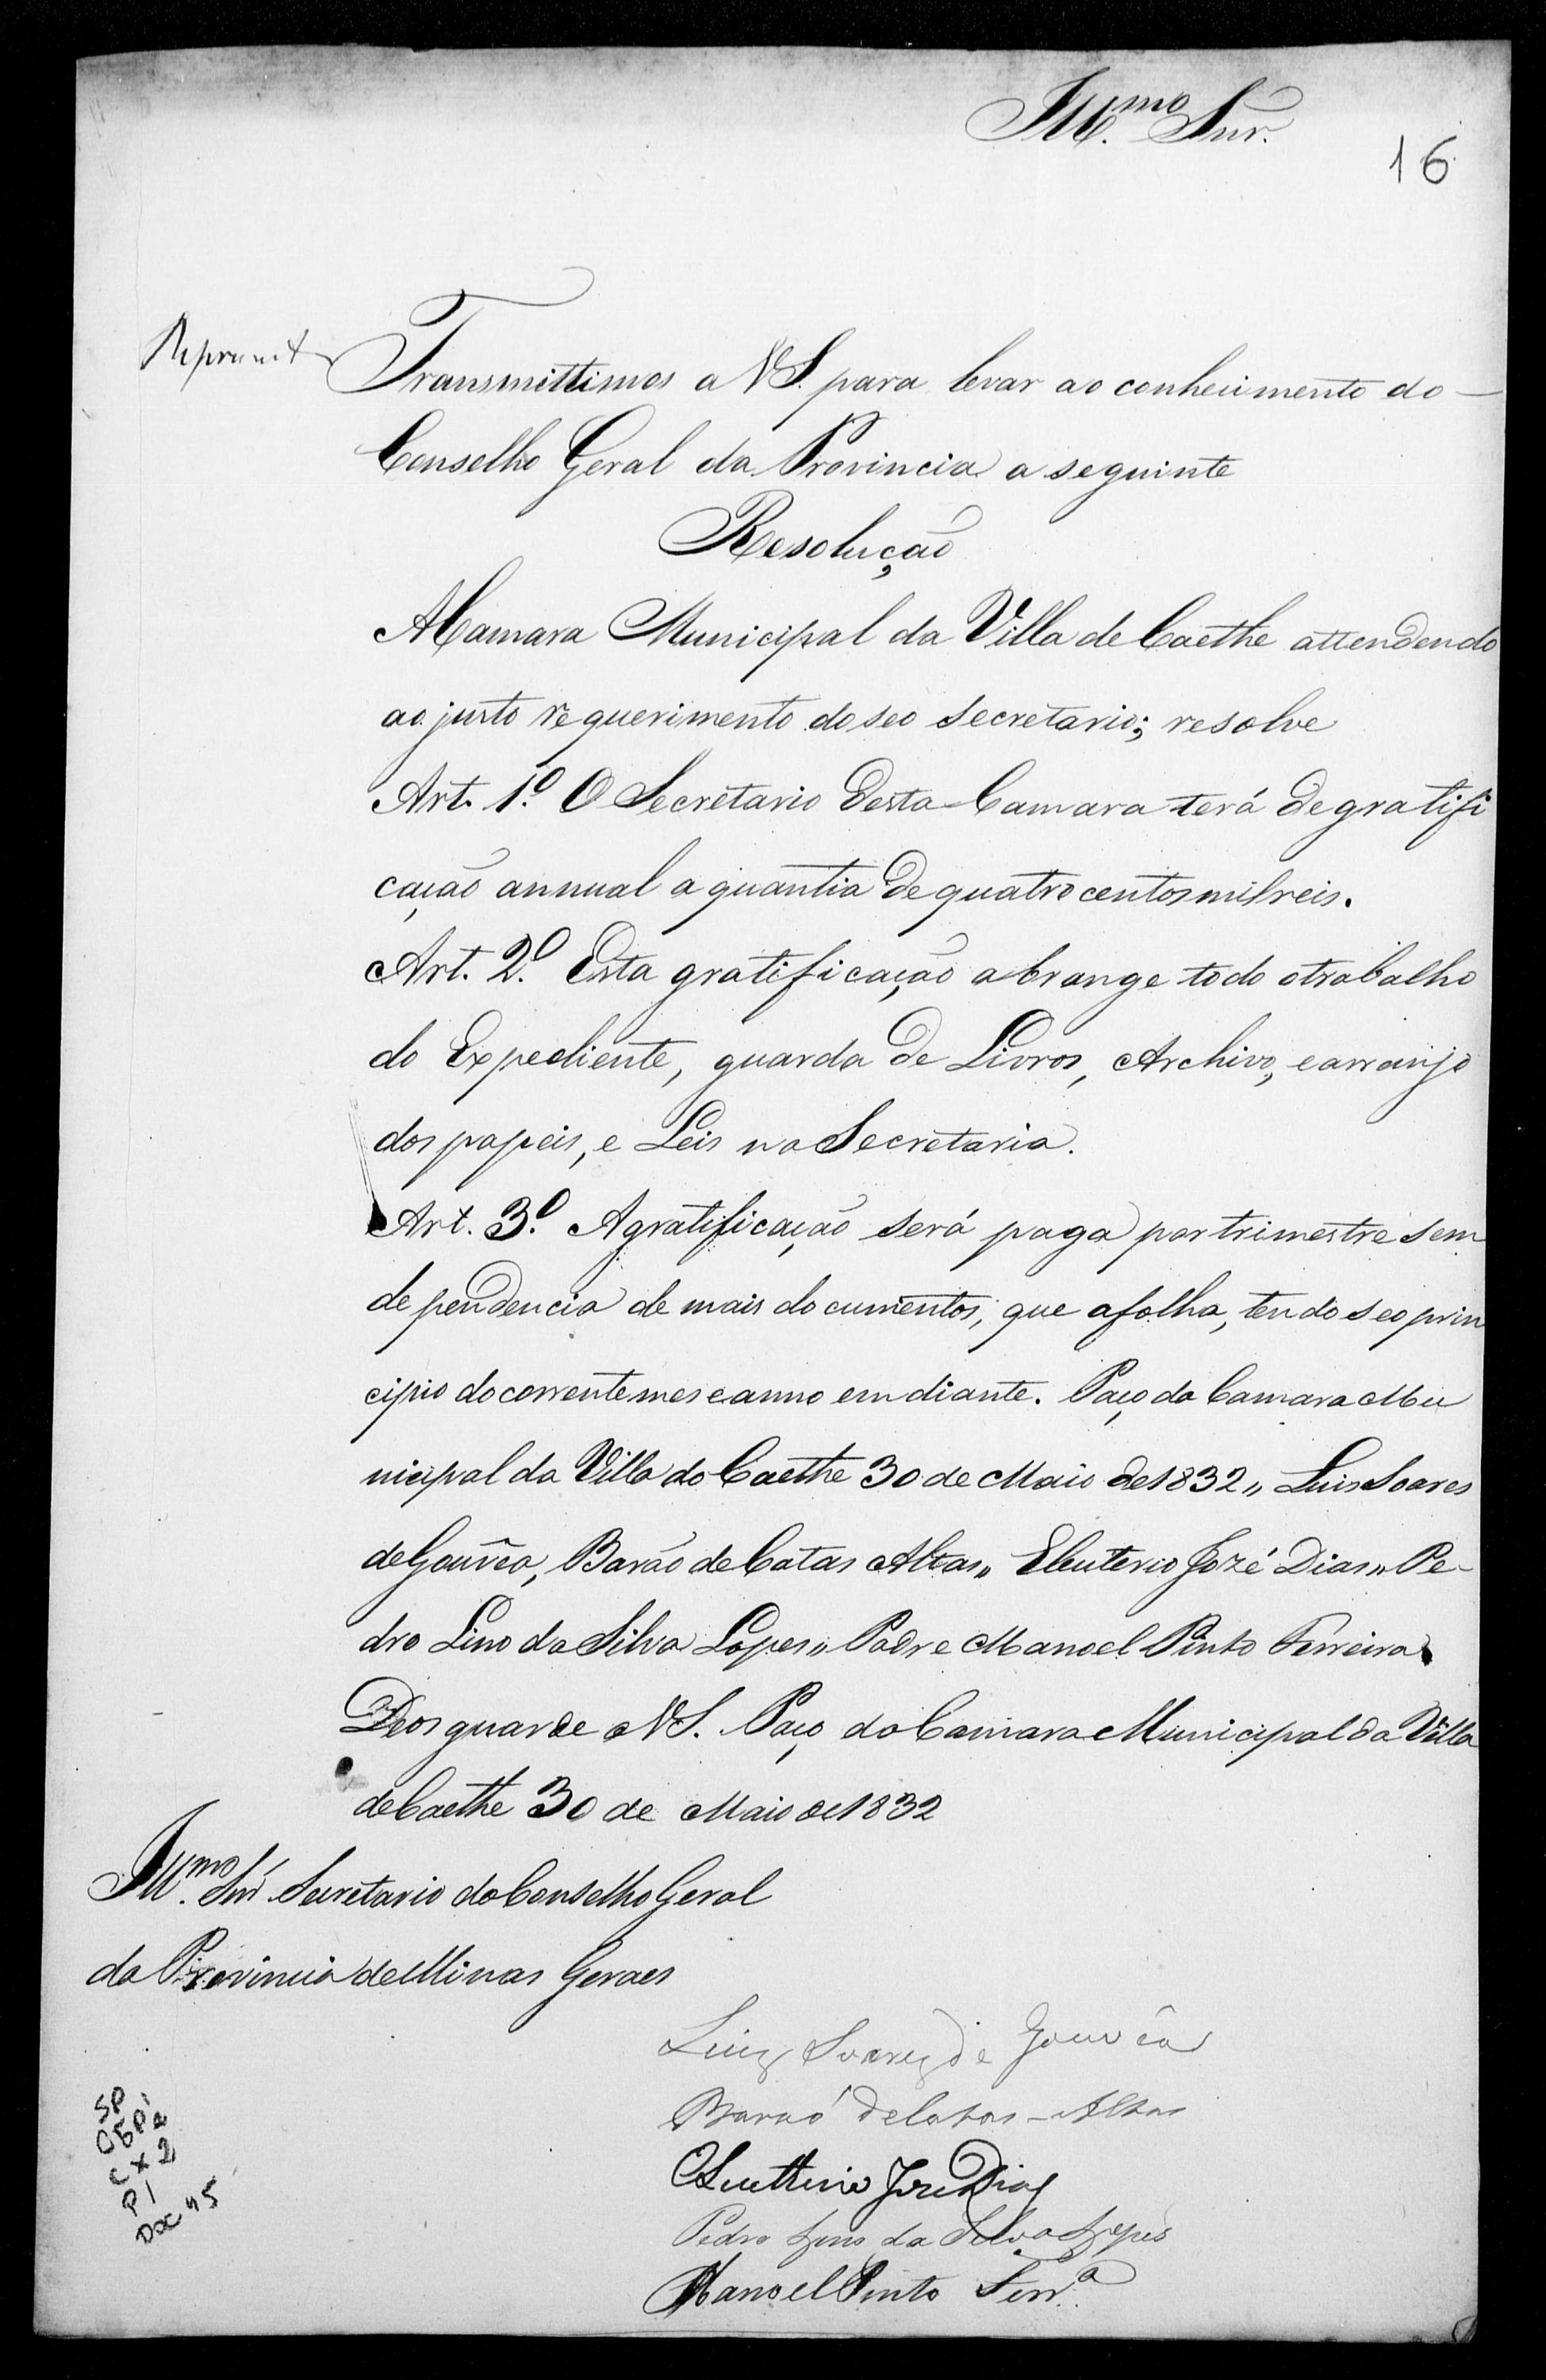 Ill.mo Snr.
16
Transmittimos a VS. para levar ao conhecimento do
Conselho Geral da Provincia a seguinte
Resolução
A Camara Municipal da Villa de Caethe attendendo
ao justo requerimento do seo secretario; resolve
Art. 1.º O Secretario desta Camara terá de gratifi
cação annual a quantia de quatro centos mil reis.
Art. 2.º Esta gratificação abrange todo o trabalho
do Expediente, guarda de Livros, Archivo, e arranjo
dos papeis, e Leis na Secretaria.
Art. 3.º A gratificação será paga por trimestre sem
dependencia de mais documentos, que a folha, tendo seo prin
cipio do corrente mes e anno em diante. Paço da Camara Mu
nicipal da Villa do Caethe 30 de Maio de 1832 „ Luis Soares
de Gouvêa, Barão de Catas Altas „ Eleuterio Jozé Dias „ Pe-
dro Lino da Silva Lopes „ Padre Manoel Pinto Ferreira
Deos guarde a VS. Paço da Camara Municipal da Villa
de Caethe 30 de Maio de 1832
Ill.mo Snr. Secretario do Conselho Geral
da Provincia de Minas Geraes
Luiz Soares de Gouvêa
Baraó de Catas-Altas
Eleutherio Joze Dias
Pedro Lino da Silva Lopes
Manoel Pinto Ferr.a
SP
CX 2
P1
Doc 45